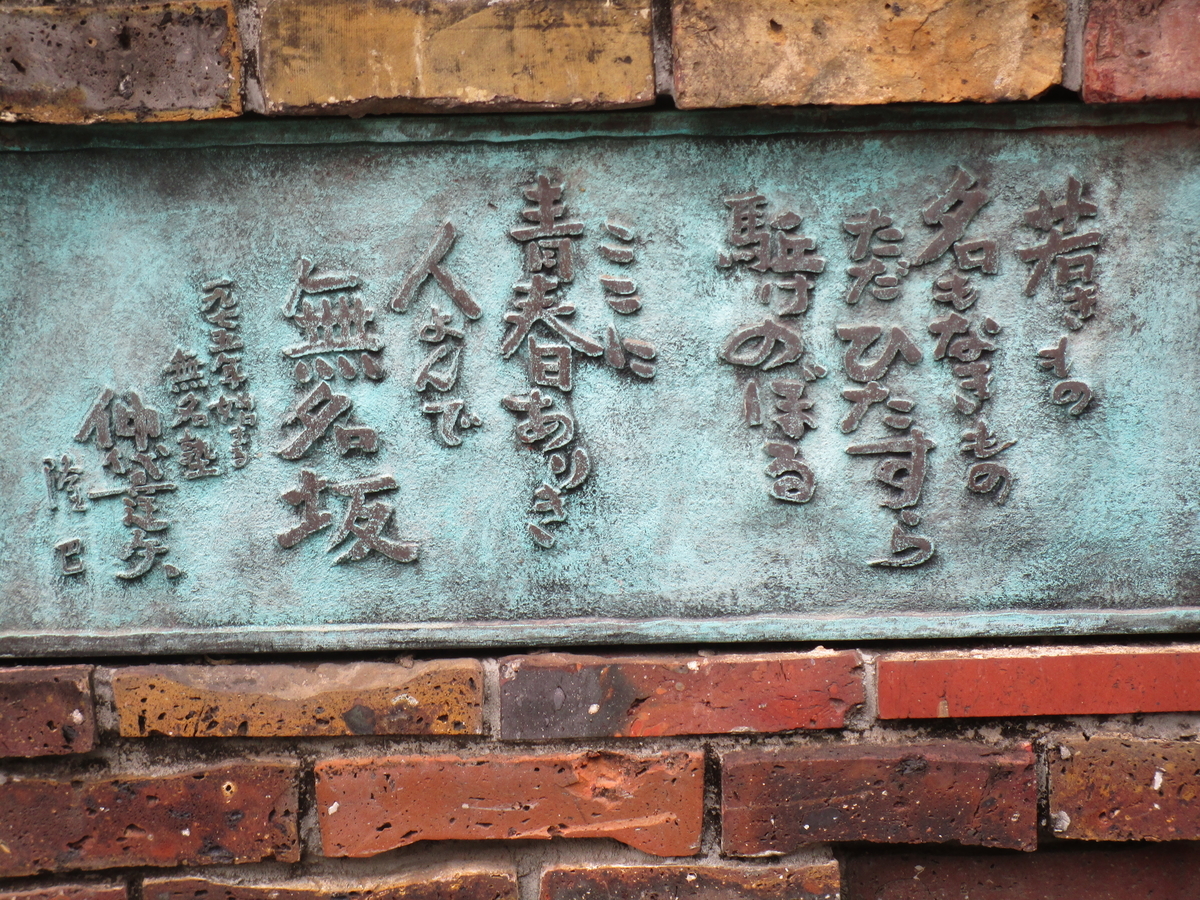 若きもの
名もなきもの
ただひたすら
駈けのぼる
ここに
青春ありき
人よんで
無名坂
一九七五年始まる
無名塾
仲代達矢
隆巴